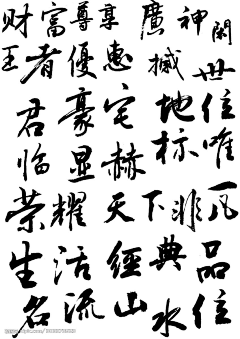 财富尊享廣神闕
王者優惠撼世
君豪宅地位
临显赫标唯
荣耀天下非凡
生活經典品
名流山水位